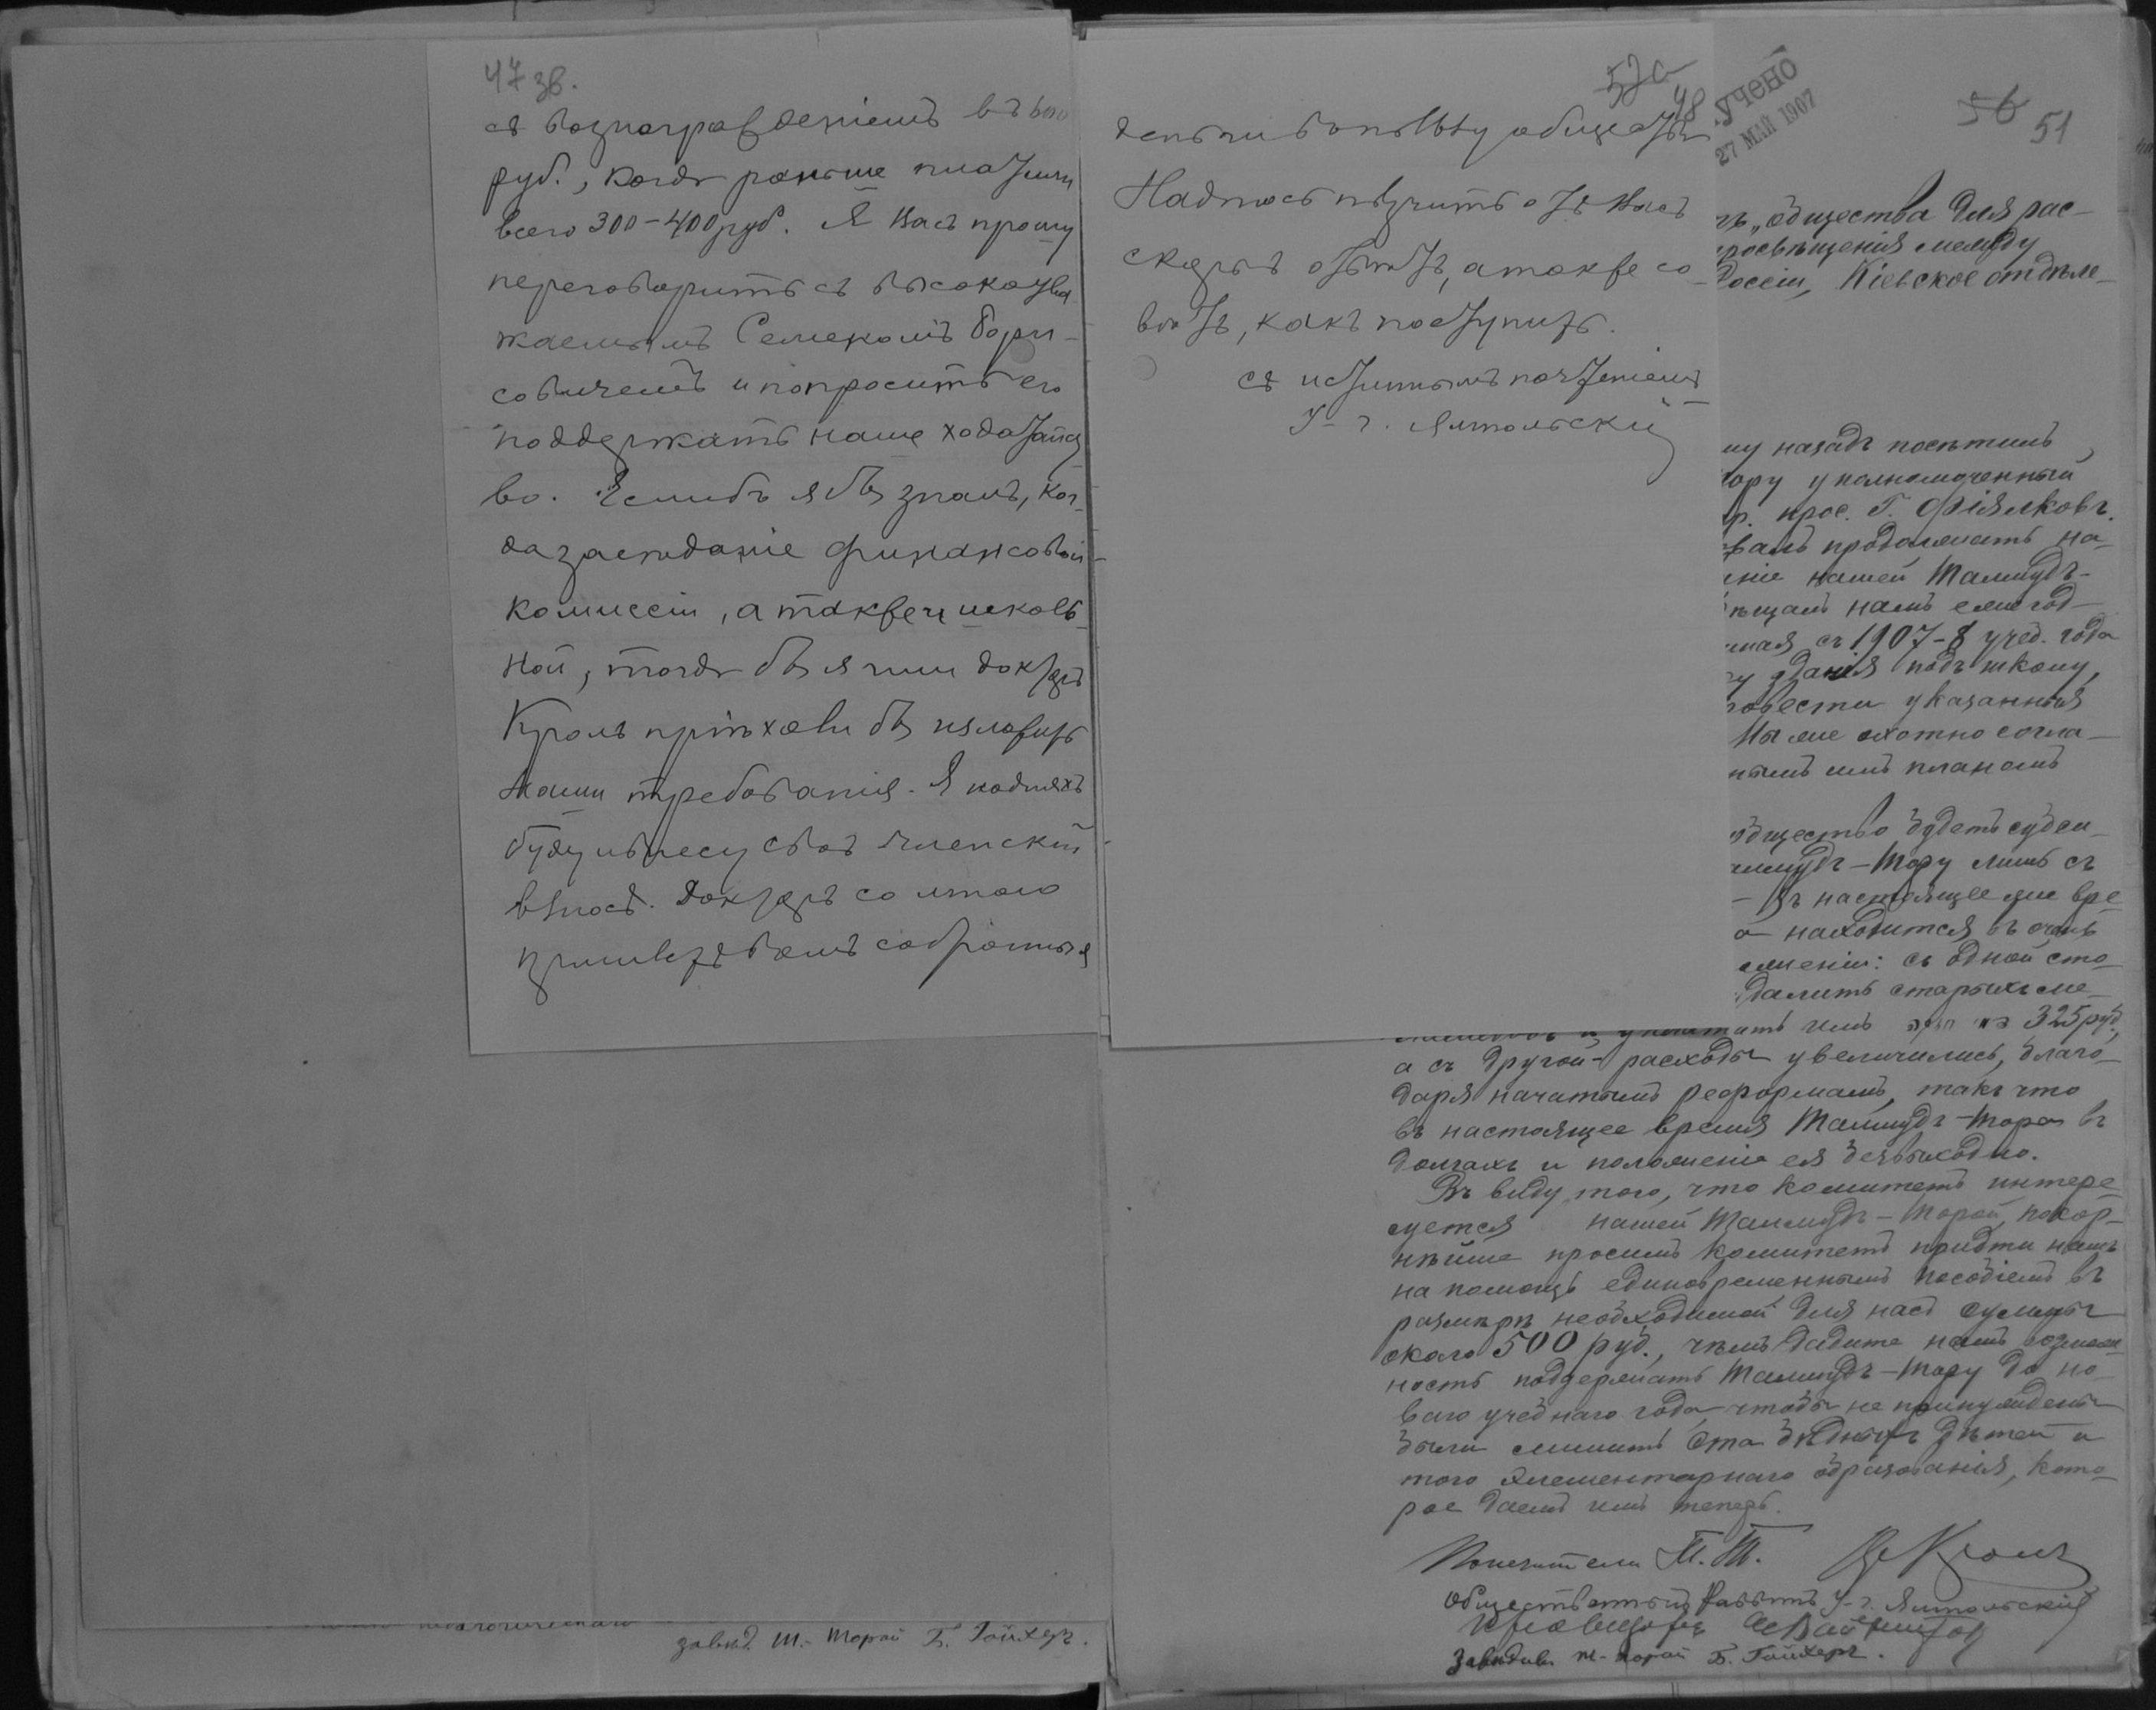 47 зв.
съ вознагражденіемъ въ 600
руб., когда раньше платили
всего 300-400 руб. Я Васъ прошу
переговорить съ высокоува
жаемымъ Семеномъ Бори-
совичемъ и попросить его
поддержать наше ходатайст
во. Если бъ я бы зналъ, ког-
да засѣданіе финансовой
комиссіи, а также и школь
ной, тогда бы я или докторъ
Кроль пріѣхали бы изложить
наши требованія. Я на дняхъ
буду и внесу свой членскій
взносъ. Докторъ со мною
пришлетъ Вамъ собранныя
завѣд. Т.-Торой Б. Гойхеръ.
52а
48
деньги въ пользу общества
Надѣюсь получить отъ Васъ
скорый отвѣтъ, а также со-
вѣтъ, какъ поступить.
Съ истиннымъ почтеніемъ
У-г. Ямпольскій
учено
27 МАЙ 1907
56 51
ъ „Общества для рас-
просвѣщенія между
Россіи, Кіевское отдѣле-
му назадъ посѣтилъ,
Тору уполномоченный
р. прос. Г. Фіялковъ.
валъ продолжать на-
еніе нашей Талмудъ-
ѣщалъ намъ ежегод-
иная съ 1907-8 учеб. года
у зданія подъ школу,
ровести указанныя
Мы же охотно согла-
нымъ имъ планомъ
общество будетъ субси-
алмудъ-Тору лишь съ
- Въ настоящее же вре-
а находится въ очень
оженіи: съ одной сто-
далить старыхъ ме-
ламедовъ и уплатить имъ 325 руб.,
а съ другой - расходы увеличились, благо-
даря начатымъ реформамъ, такъ что
въ настоящее время Талмудъ-Тора въ
долгахъ и положеніе ея безвыходно.
Въ виду того, что комитетъ интере-
суется нашей Талмудъ-Торой, покор-
нѣйше просимъ комитетъ придти намъ
на помощь единовременнымъ пособіемъ въ
размѣрѣ необходимой для насъ суммы
около 500 руб., чѣмъ дадите намъ возмож
ность поддержать Талмудъ-Тору до но-
ваго учебнаго года, чтобы не принуждены
были лишить ста бѣдныхъ дѣтей и
того элементарнаго образованія, кото-
рое даемъ имъ теперь.
Попечители Т.Т. Кроль
Общественный Раввинъ У-г. Ямпольскій
Завѣдыв. Т-Торой Б. Гойхеръ.